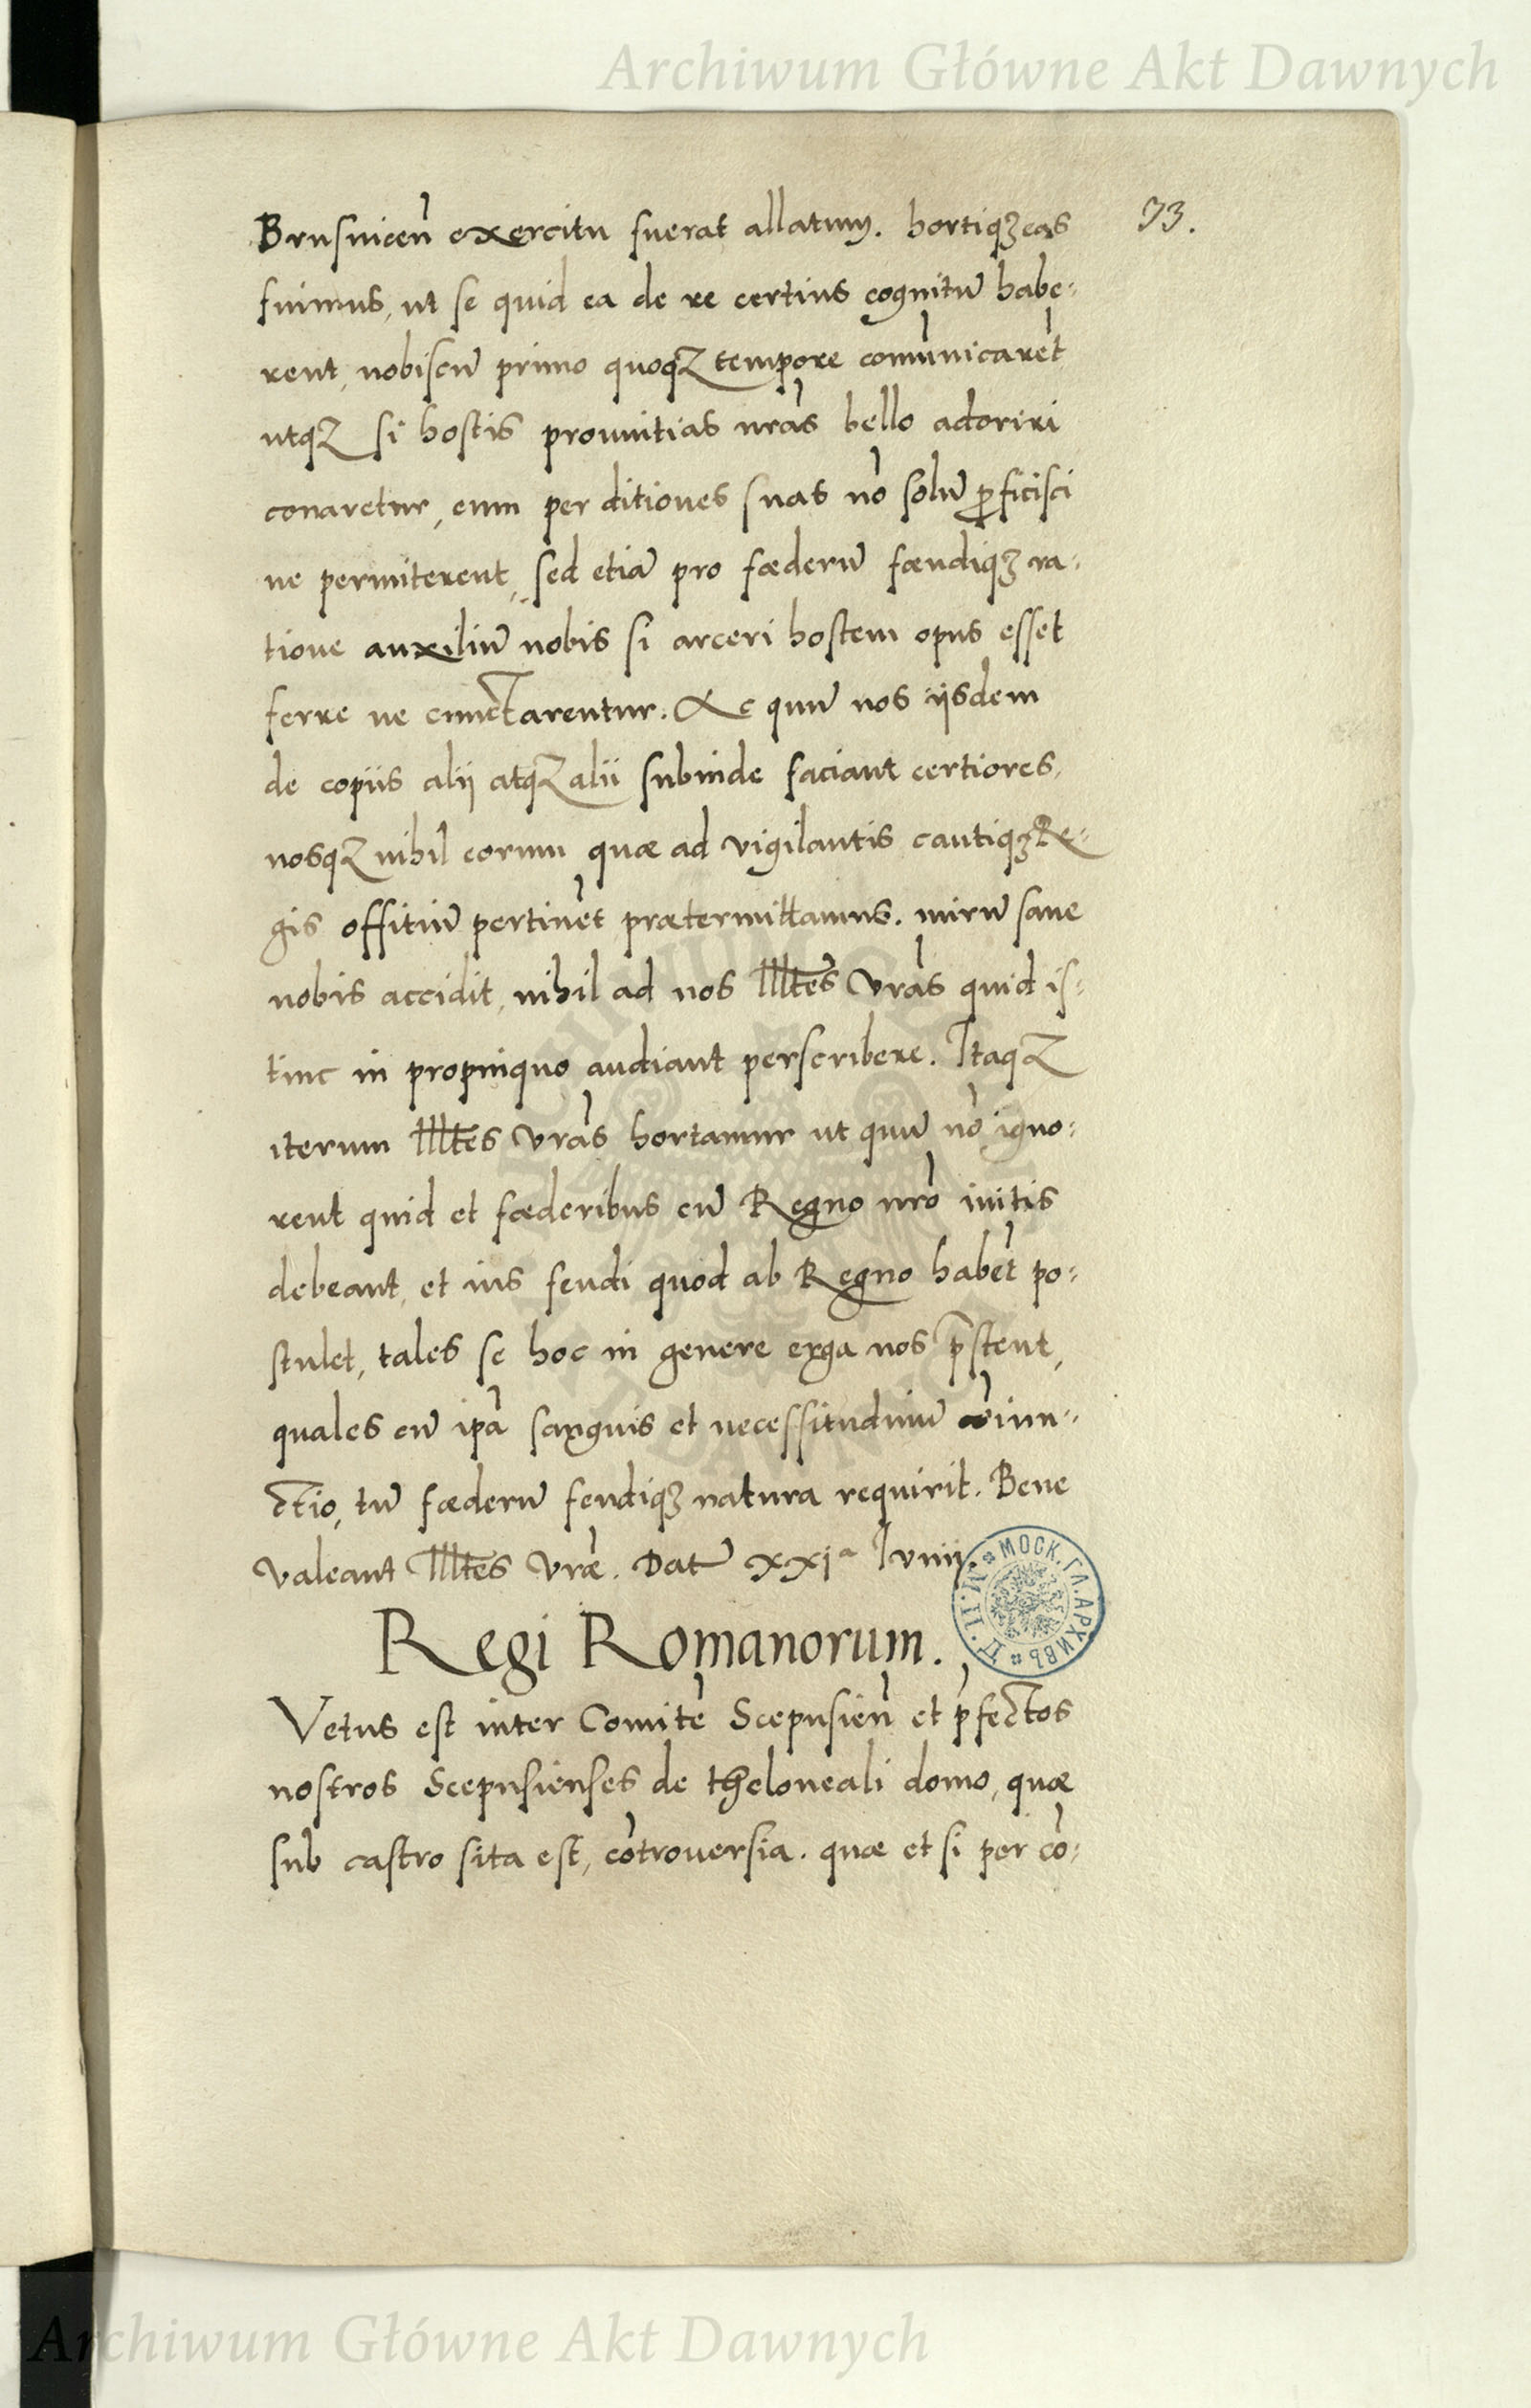 Archiwum Główne Akt Dawnych
73.
Brusuicen̄ exercitu fuerat allatum. hortiqꝫ eas
fuimus, ut se quid ea de re certius cognitū habe-
rent, nobiscū primo quoqꝫ tempore com̄unicarēt
utqꝫ si hostis prouintias nr̄as bello adoriri
conaretur, eum per ditiones suas nō solū ꝓficisci
ne permiterent, sed etiā pro fœderū fœudiqꝫ ra-
tione auxiliū nobis si arceri hostem opus esset
ferre ne cunctarentur. Ac quū nos ijsdem
de copiis alij atqꝫ alii subinde faciant certiores,
nosqꝫ nihil eorum quæ ad vigilantis cautiqꝫ Re-
gis offitiū pertinēt prætermittamus. mirū sane
nobis accidit, nihil ad nos Illtēs Vr̄as quid is-
tinc in propinquo audiant perscribere. Itaqꝫ
iterum Illtēs Vr̄as hortamur ut quū nō igno-
rent quid et fœderibus cū Regno nr̄o initis
debeant, et ius feudi quod ab Regno habēt po-
stulet, tales se hoc in genere erga nos p̄stent,
quales cū ip̄a sanguis et necessitudinū cōiun-
ctio, tū fœderū feudiqꝫ natura requirit. Bene
Valeant Illtēs Vr̄æ. Dat̄ XXIᵃ Iunij.
Regi Romanorum.
Vetus est inter Comitē Scepusien̄ et p̄fectos
nostros Scepusienses de theloneali domo, quæ
sub castro sita est, cōtrouersia. quæ et si per cō-
МОСК. ГЛ. АРХИВЪ
Archiwum Główne Akt Dawnych